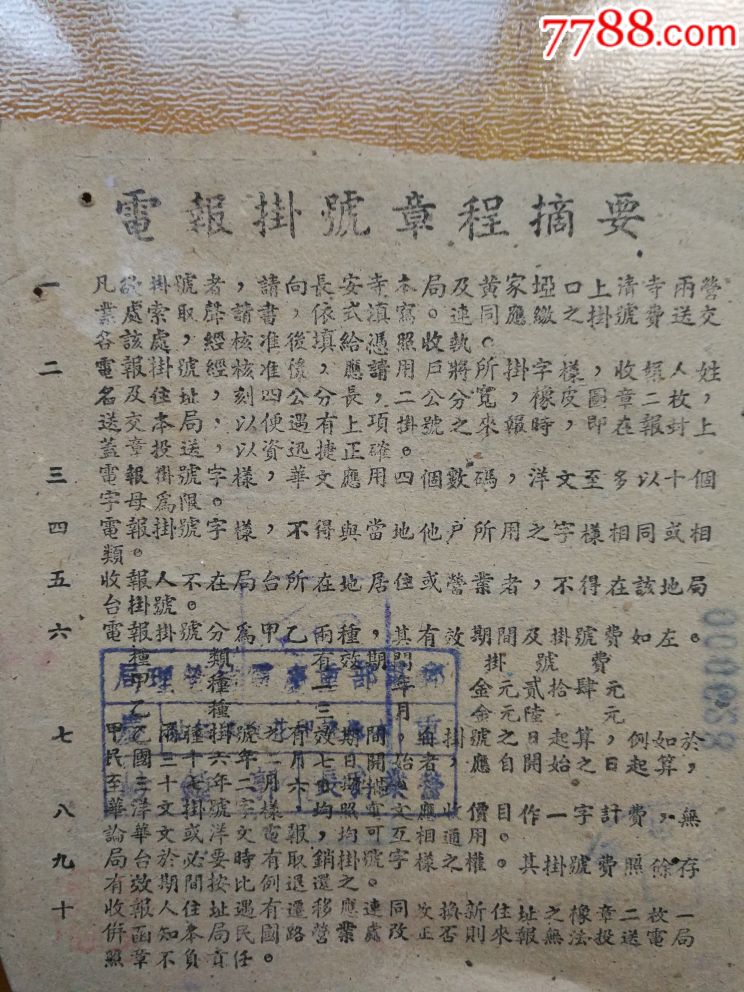 7788.com
電報掛號章程摘要
一 凡欲掛號者,請向長安寺本局及黃家埡口上清寺兩營
業處索取聲請書,依式滇寫。連同應繳之掛號費送交
各該處,經核准後填給憑照收執。
二 電報掛號經核准後,應請用戶將所掛字樣,收報人姓
名及住址,刻四公分長,二公分寬,橡皮圖章二枚,
送交本局,以便遇有上項掛號之來報時,即在報封上
蓋章投送,以資迅捷正確。
三 電報掛號字樣,華文應用四個數碼,洋文至多以十個
字母為限。
四 電報掛號字樣,不得與當地他戶所用之字樣相同或相
類。
五 收報人不在局台所在地居住或營業者,不得在該地局
台掛號。
六 電報掛號分為甲乙兩種,其有效期間及掛號費如左。
種類 有效期間 掛號費
甲種 一年 金元貳拾肆元
乙種 三月 金元陸元
七 甲乙兩種掛號有效期間,自掛號之日起算,例如於
民國三十六年
八 華洋文掛號字樣 均照 文應收價目作一字計費,無
論華文或洋文電報均可互相通用。
九 局台於必要時有取銷掛號字樣之權。其掛號費照餘存
有效期間按比例退還之。
十 收報人住址遇有遷移應連同改換新住址之橡章二枚一
併函知本局民國路營業處改正否則來報無法投送電局
照章不負責任。
000638